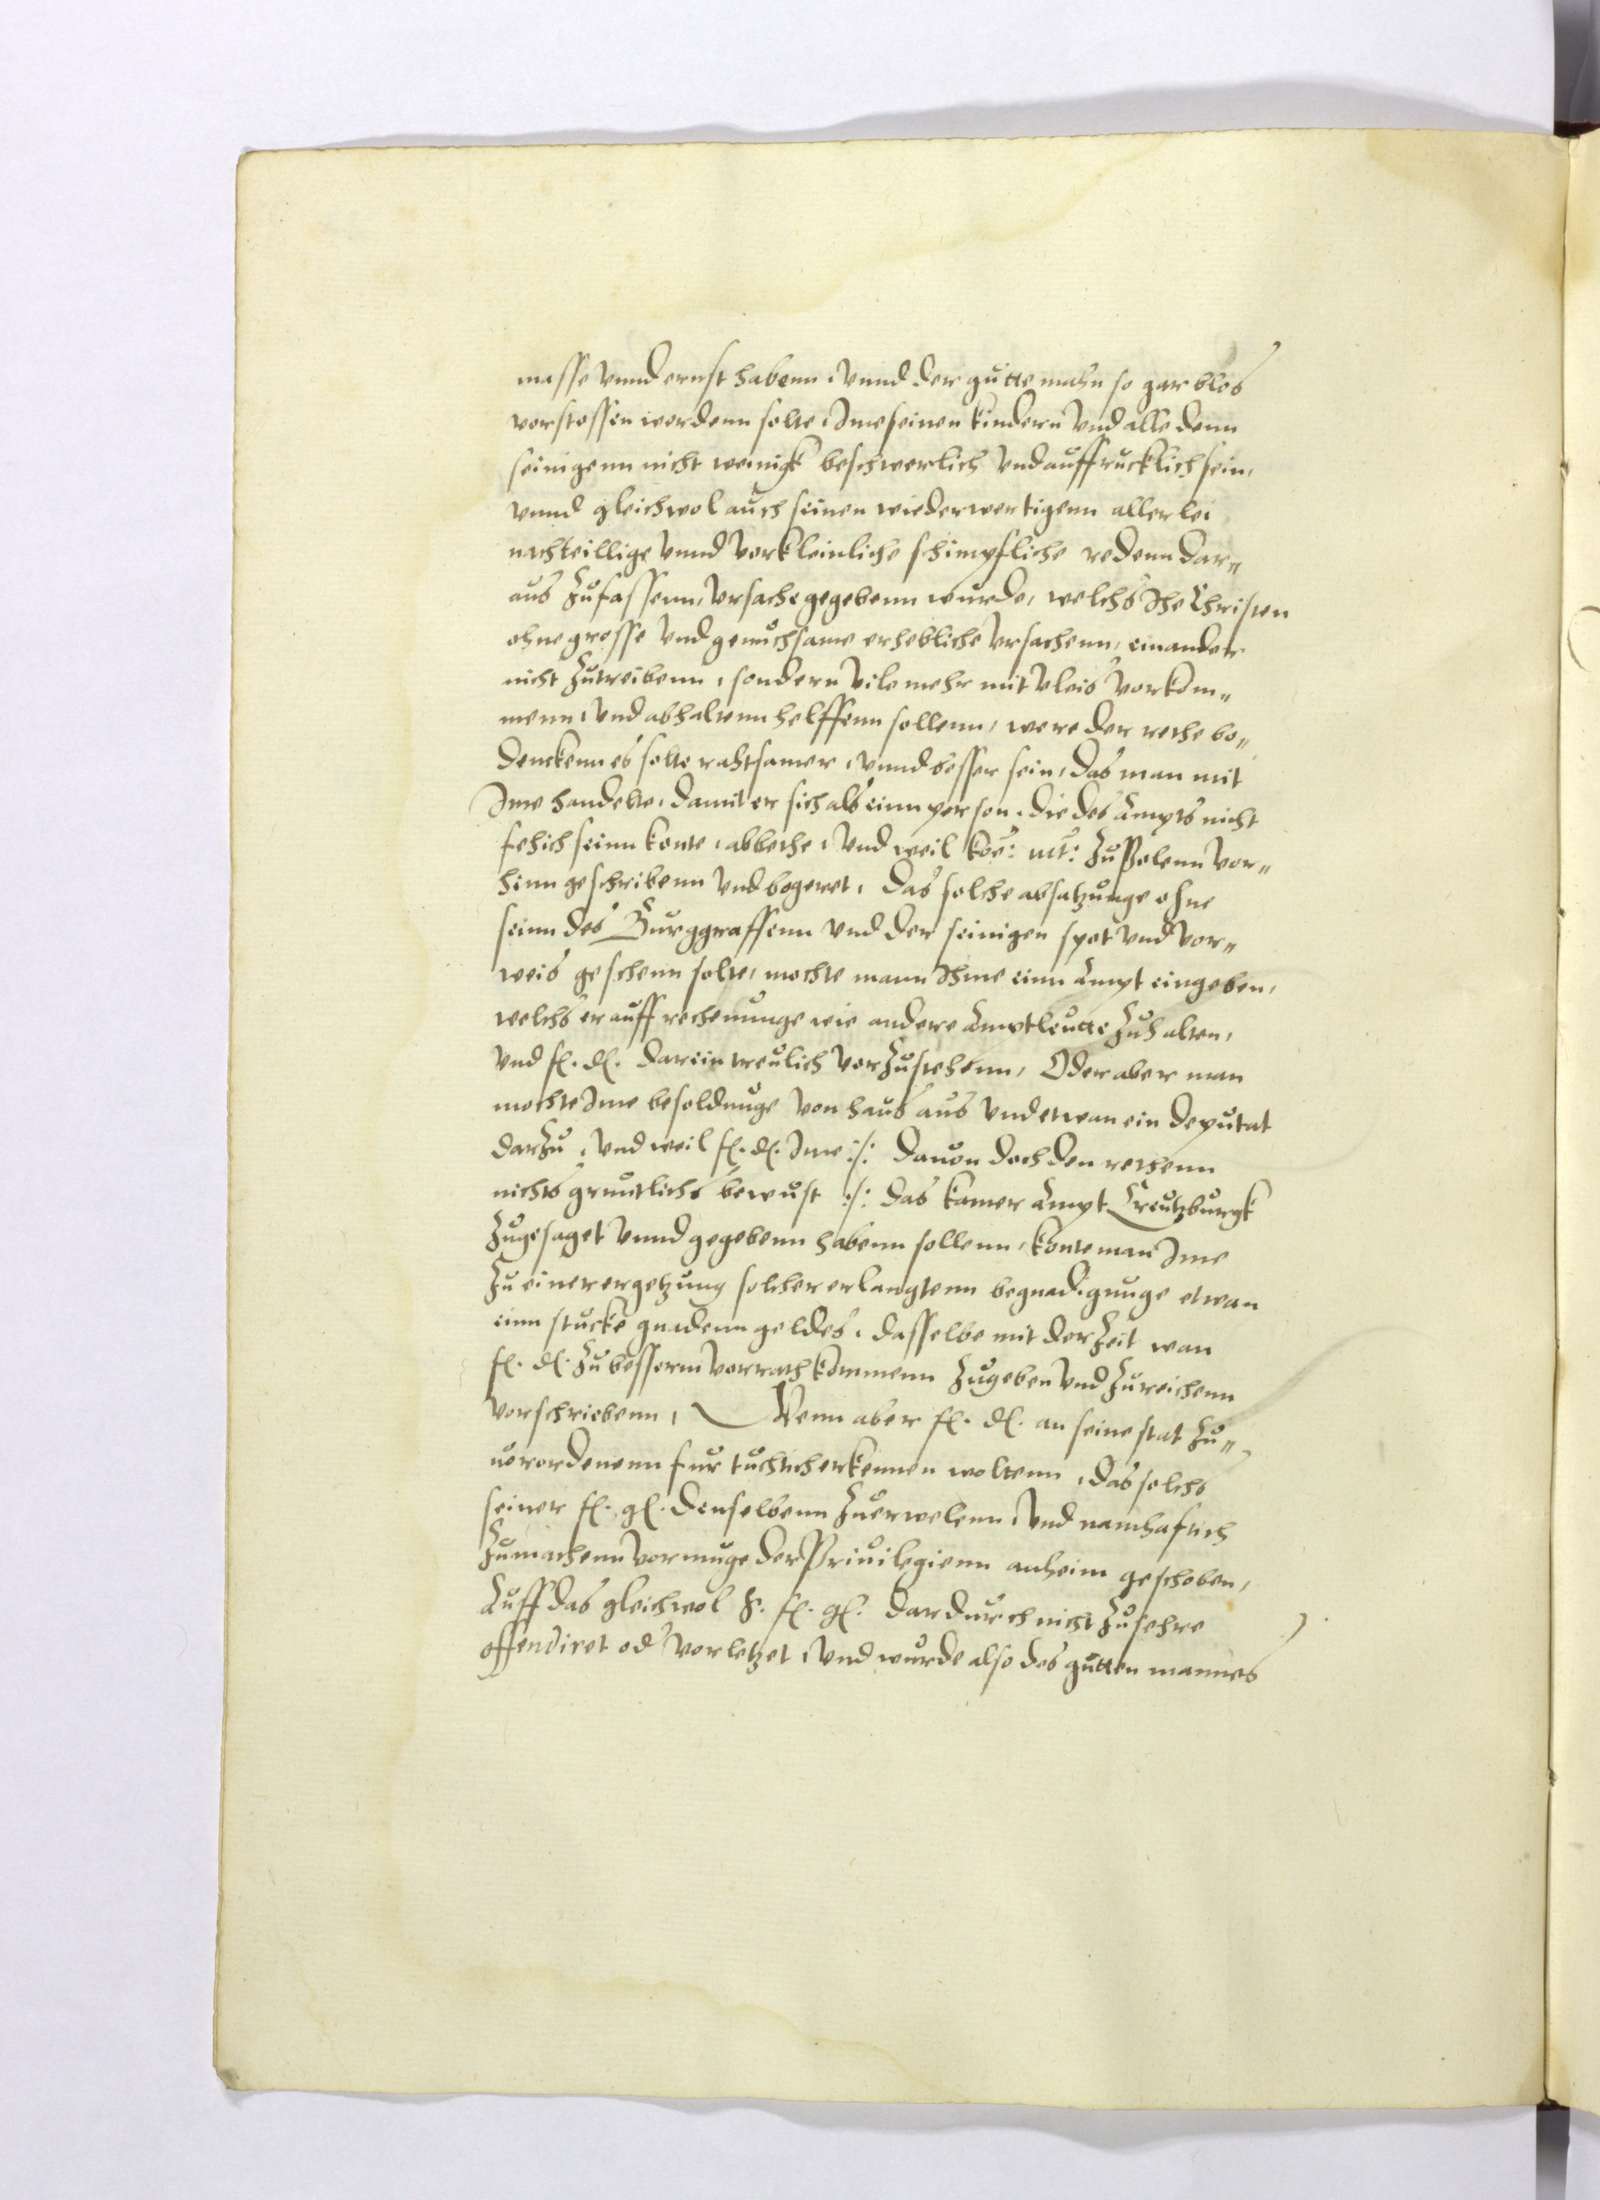 masse vnnd ernst habenn, vnnd der gutte mahn so gar blos
verstossen werdenn solte, Ime seinen kindern vnd alle denn
seinigenn nicht wenigk beschwerlich vnd auffrucklich sein,
vnnd gleichwol auch seinen wiederwertigenn allerlei
nachteillige vnnd vorkleinliche schimpfliche redenn dar„
aus Zufassenn, vrsache gegebenn wurde, welchs Ihe Christen
ohne grosse vnd genuchsame erhebliche vrsachenn, einander
nicht Zutreibenn, sondern vilemehr mit vleis vorkom„
menn, vnd abhaltenn helffenn sollenn, were der rethe be„
denckenn es solte rahtsamer, vnnd besser sein, das man mit
Ime handelte, damit er sich als einn person, die des Ampts nicht
fehich seinn konte, abbethe, vnd weil koe: mt: Zu Polenn vor„
hinn geschribenn vnd begeret, das solche absatzunge ohne
seinn des Burggraffenn vnd der seinigen spot vnd vor„
weis geschenn solte, mochte mann Ihme einn Ampt eingeben,
welchs er auff rechenunge wie andere Amptleutte Zuhalten,
vnd f. d. darein treulich vorZustehenn, Oder aber man
mochte Ime besoldunge von haus aus vnd etwan ein deputat
darZu, vnd weil f. d. Ime :/: dauon doch den rethenn
nichts gruntlichs bewust :/: das kamer Ampt Creutzburgk
Zugesaget vnnd gegebenn habenn sollenn, konte man Ime
Zu einer ergetzung solcher erlangtenn begnadigunge etwan
einn stucke gnadenn geldes, dasselbe mit der Zeit wan
f. d. Zu besserm vorrath kommenn Zugeben vnd Zureichenn
vorschriebenn, Wenn aber f. d. an seine stat Zu„
uerordenenn fur tuchtich erkennen woltenn, das solchs
seiner f. g. denselbenn Zuerwelenn, vnd namhaftich
Zumachenn vormuge der Priuilegienn anheim geschoben,
Auff das gleichwol S. f. g. dardurch nicht Zusehre
offendiret od vorletzet, vnd wurde also des gutten mannes